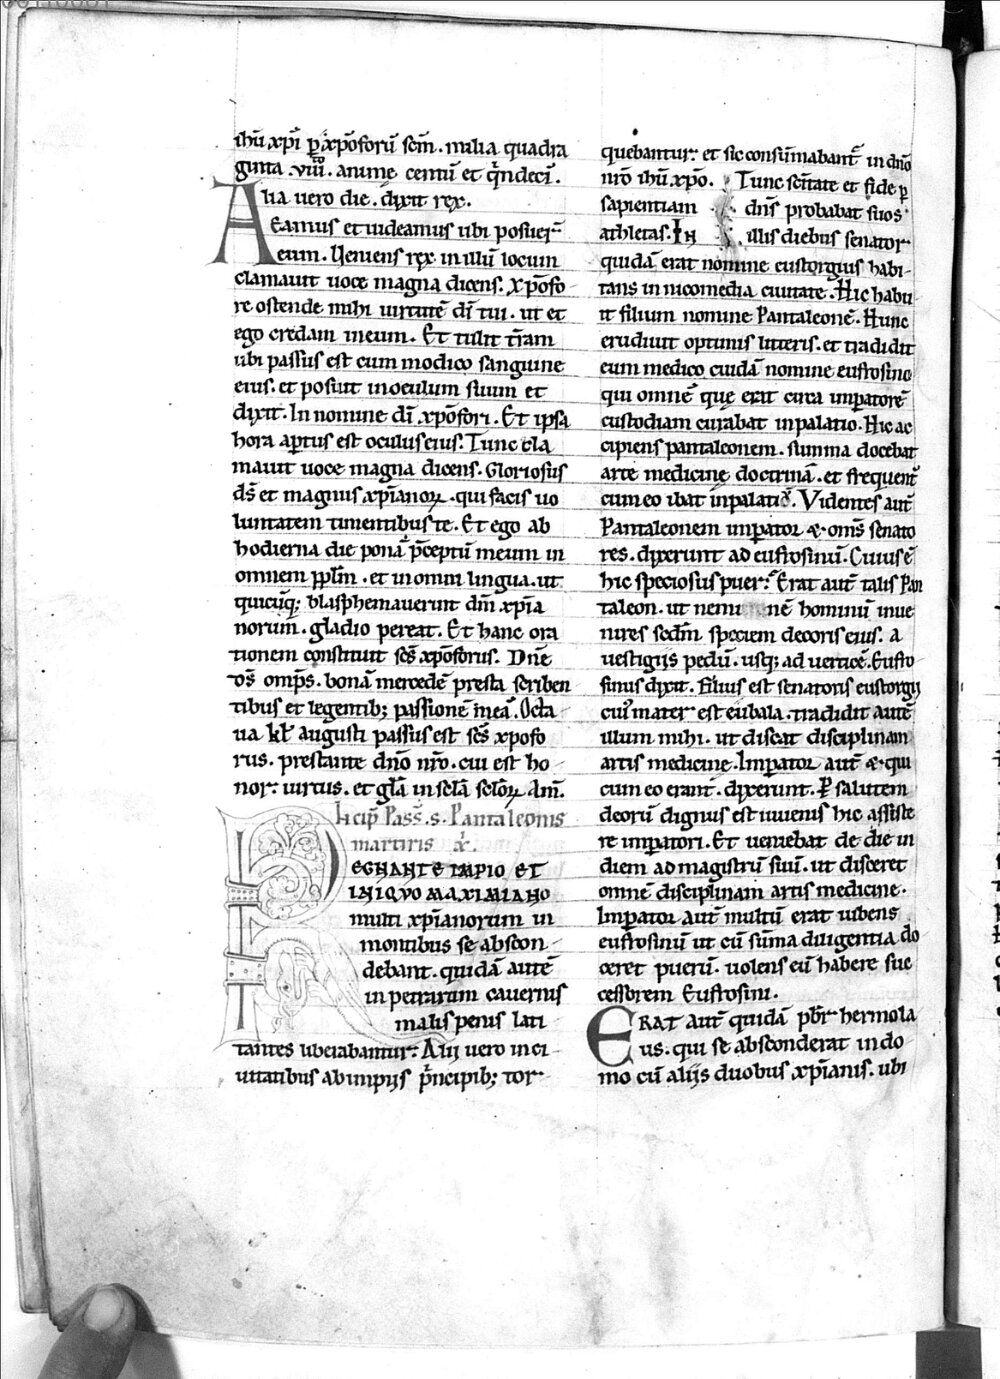 ihū xp̄i ꝑ xp̄oforū scm̄. milia quadra
ginta .viii. anime centū et q̄ndecī.
Alia uero die. dixit rex.
Eamus et uideamus ubi posuer̄
eum. Ueniens rex in illū locum
clamauit uoce magna dicens. xp̄ofo
re ostende mihi uirtutē dī tui. ut et
ego credam in eum. Et tulit tr̄am
ubi passus est cum modico sanguine
eius. et posuit in oculum suum et
dixit. In nomine dī xp̄ofori. Et ipsa
hora aꝑtus est oculus eius. Tunc cla
mauit uoce magna dicens. Gloriosus
ds̄ et magnus xp̄ianoꝝ. qui facis uo
luntatem timentibus te. Et ego ab
hodierna die ponā p̄ceptū meum in
omnem pp̄lm̄. et in omni lingua. ut
quicūq; blasphemauerint dm̄ xp̄ia
norum. gladio pereat. Et hanc ora
tionem constituit scs̄ xp̄oforus. Dn̄e
ds̄ omp̄s. bonā mercedē presta scriben
tibus et legentib; passionē meā. Octa
ua kl̄ augusti passus est scs̄ xpofo
rus. prestante dn̄o nr̄o. cui est ho
nor. uirtus. et gl̄a in scl̄a scl̄oꝝ. Am̄.
Incip̄ Pass̄. s. Pantaleonis
martiris x̄.
REGNANTE IMPIO ET
INIQVO MAXIMIANO
multi xp̄ianorum in
montibus se abscon
debant. quidā autē
in petrarum cauernis
malis penis lati
tantes libeiabantur. Alij uero in ci
uitatibus ab impijs p̄ncipib; tor
quebantur. et sic consūmabant̄ in dn̄o
nr̄o ihū xp̄o. Tunc sc̄itate et fide ꝑ
sapientiam dn̄s probabat suos
athletas. In illis diebus senator
quidā erat nomine eustorgius habi
tans in nicomedia ciuitate. Hic habu
it filium nomine Pantaleonē. Hunc
erudiuit optimis litteris. et tradidit
eum medico cuidā nomine eufrosino
qui omnē quę erat circa imꝑatorē
custodiam curabat in palatio. Hic ac
cipiens pantaleonem. summa docebat
arte medicinę doctrinā. et frequent̄
cum eo ibat in palatiō. Videntes aut̄
Pantaleonem imꝑator & om̄s senato
res. dixerunt ad eufrosinū. Cuius ē
hic speciosus puer. Erat aut̄ talis Pan
taleon. ut nemi nē hominū inue
nires scdm̄ speciem decoris eius. a
uestigijs pedū. usq; ad uerticē. Eufro
sinus dixit. Filius est senatoris eustorgij
cui᾽ mater est eubala. tradidit autē
illum mihi. ut discat disciplinam
artis medicine. Imꝑator aut̄ & qui
cum eo erant. dixerunt. Ꝑ salutem
deorū dignus est iuuenis hic assiste
re imꝑatori. Et ueniebat de die in
diem ad magistrū suū. ut disceret
omnē disciplinam artis medicine.
Imꝑator aut̄ multū erat iubens
eufrosinū ut cū sūma diligentia do
ceret puerū. uolens eū habere suc
cessorem Eufrosini.
ERAT aut̄ quidā pbr̄ hermola
us. qui se absconderat in do
mo cū alijs duobus xp̄ianis. ubi